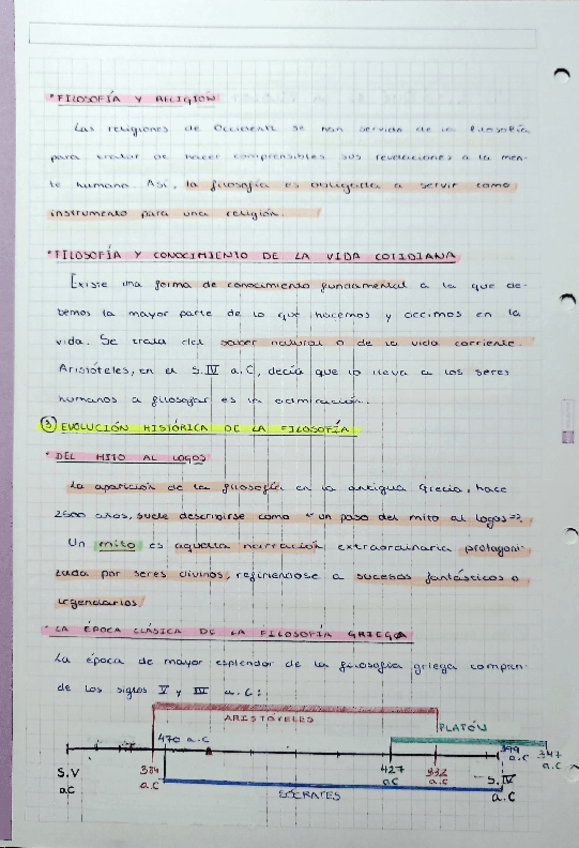 • FILOSOFÍA Y RELIGIÓN
Las religiones de Occidente se han servido de la filosofía
para tratar de hacer comprensibles sus revelaciones a la men-
te humana. Así, la filosofía es obligada a servir como
instrumento para una religión.
• FILOSOFÍA Y CONOCIMIENTO DE LA VIDA COTIDIANA
Existe una forma de conocimiento fundamental a la que de-
bemos la mayor parte de lo que hacemos y decimos en la
vida. Se trata del saber natural o de la vida corriente.
Aristóteles, en el S.IV a.C, decía que lo lleva a los seres
humanos a filosofar es la admiración.
③ EVOLUCIÓN HISTÓRICA DE LA FILOSOFÍA
• DEL MITO AL LOGOS
La aparición de la filosofía en la antigua Grecia, hace
2500 años, suele describirse como "un paso del mito al logos".
Un mito es aquella narración extraordinaria protagoni-
zada por seres divinos, refiriéndose a sucesos fantásticos o
legendarios.
• LA ÉPOCA CLÁSICA DE LA FILOSOFÍA GRIEGA
La época de mayor esplendor de la filosofía griega compren-
de los siglos V y IV a.C:
ARISTÓTELES
PLATÓN
470 a.C
399 a.C
347 a.C
S.V a.C
384 a.C
427 a.C
332 a.C
S.IV a.C
SÓCRATES